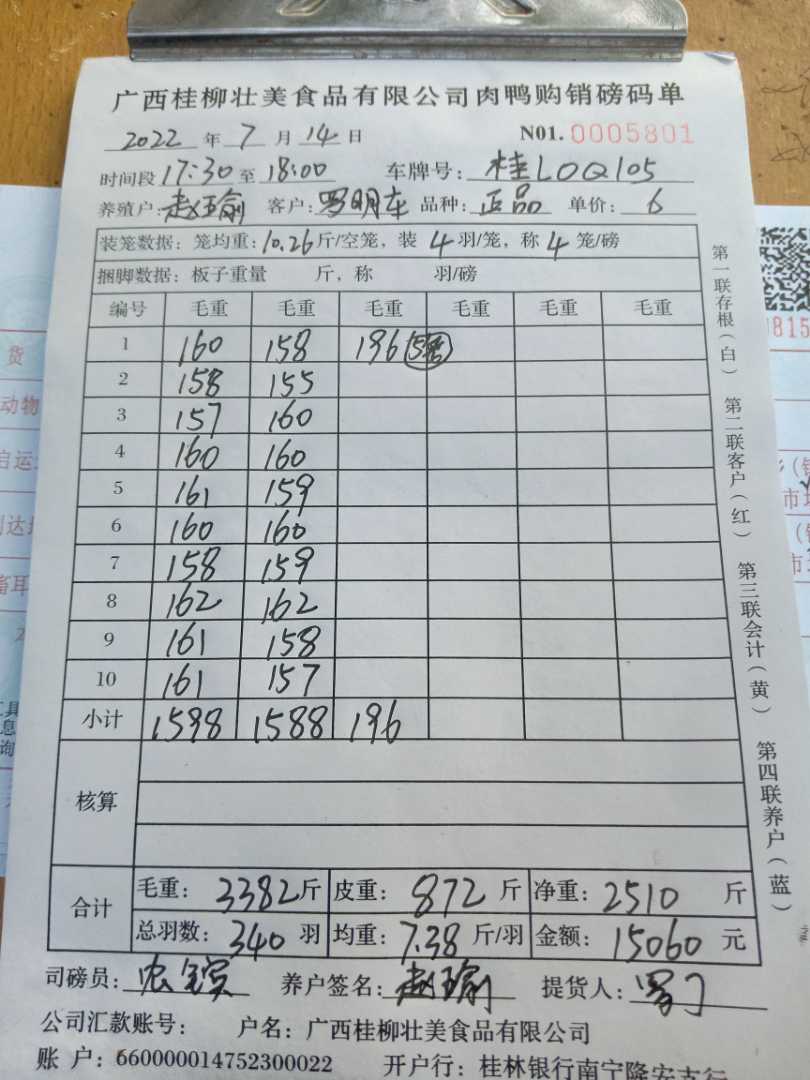 广西桂柳壮美食品有限公司肉鸭购销磅码单
2022 年 7 月 14 日 N01. 0005801
时间段 17:30 至 18:00 车牌号: 桂L0Q105
养殖户: 赵玉瑜 客户: 罗明车 品种: 正品 单价: 6
装笼数据: 笼均重: 10.26 斤/空笼, 装 4 羽/笼, 称 4 笼/磅
捆脚数据: 板子重量 斤, 称 羽/磅
编号 毛重 毛重 毛重 毛重 毛重 毛重
1 160 158 196 (5笼)
2 158 155
3 157 160
4 160 160
5 161 159
6 160 160
7 158 159
8 162 162
9 161 158
10 161 157
小计 1598 1588 196
核算
合计 毛重: 3382 斤 皮重: 872 斤 净重: 2510 斤
总羽数: 340 羽 均重: 7.38 斤/羽 金额: 15060 元
司磅员: 养户签名: 赵玉瑜 提货人:
公司汇款账号: 户名: 广西桂柳壮美食品有限公司
账 户: 660000014752300022 开户行: 桂林银行南宁隆安支行
第一联存根(白) 第二联客户(红) 第三联会计(黄) 第四联养户(蓝)
货
动物
启运
到达
畜耳
815